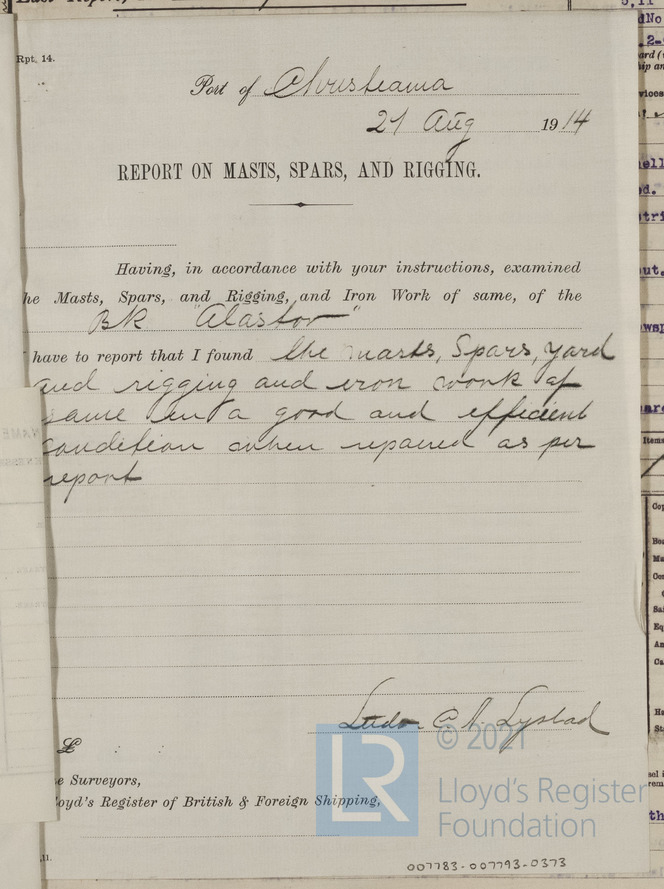 Rpt. 14.
Port of Christiania
21 Aug 1914
REPORT ON MASTS, SPARS, AND RIGGING.
Having, in accordance with your instructions, examined
he Masts, Spars, and Rigging, and Iron Work of same, of the
Bk "Alastor"
have to report that I found the masts, Spars, yard
and rigging and iron work of
same in a good and efficient
condition when repaired as per
report
Lystad
£ : :
e Surveyors,
loyd's Register of British & Foreign Shipping,
11.
© 2021
Lloyd's Register
Foundation
LR
007783-007793-0373